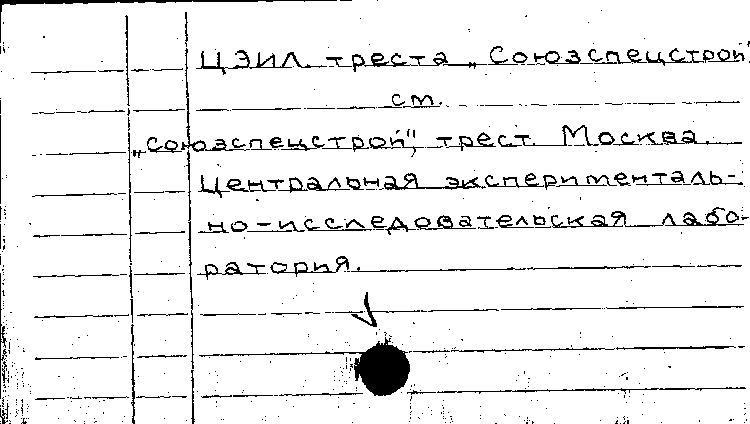 ЦЭИЛ. треста „Союзспецстрой"
см.
„Союзспецстрой", трест. Москва.
Центральная эксперименталь-
но-исследовательская лабо-
ратория.